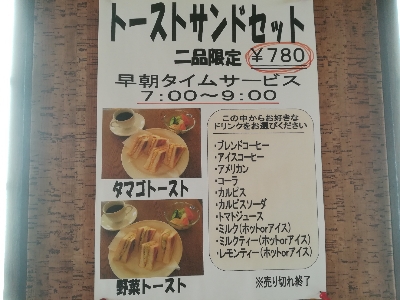 トーストサンドセット
二品限定 ¥780
早朝タイムサービス
7:00～9:00
この中からお好きな
ドリンクをお選びください
・ブレンドコーヒー
・アイスコーヒー
・アメリカン
・コーラ
・カルピス
・カルピスソーダ
・トマトジュース
・ミルク(ホットorアイス)
・ミルクティー(ホットorアイス)
・レモンティー(ホットorアイス)
タマゴトースト
野菜トースト
※売り切れ終了